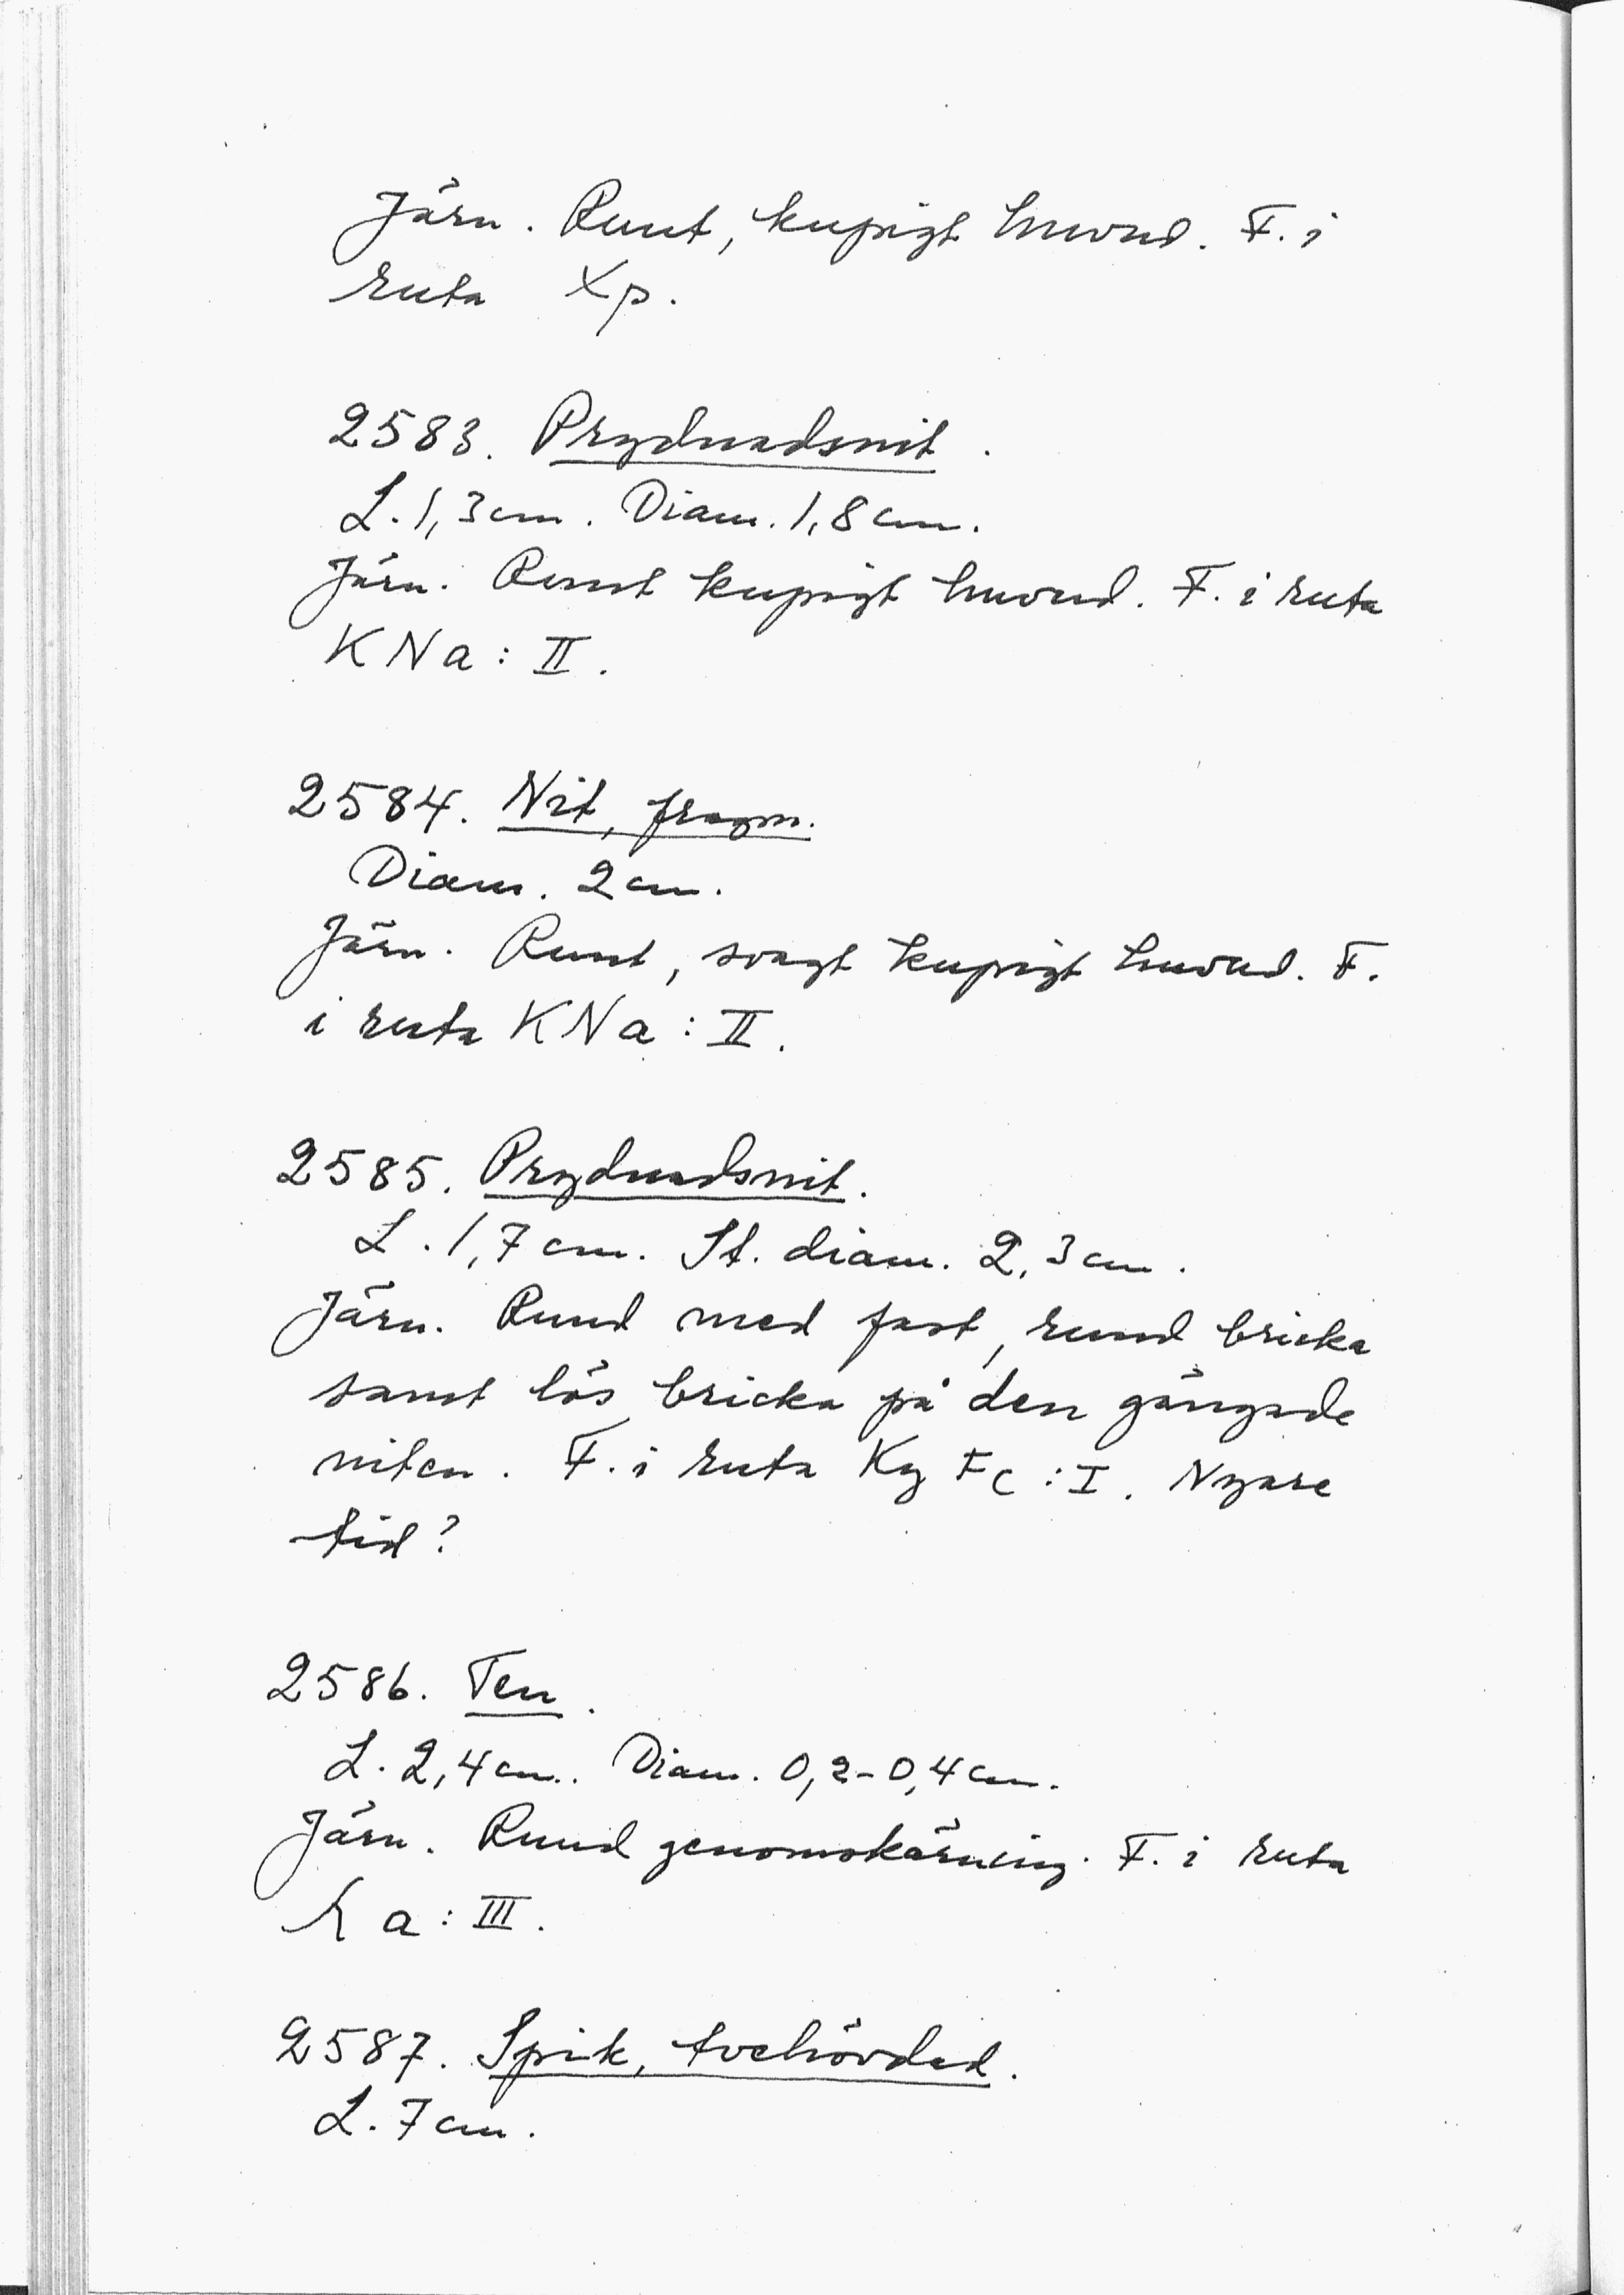 Järn. Runt, kupigt huvud. F. i
ruta Xp.
2583. Prydnadsnit.
L. 1,3 cm. Diam. 1,8 cm.
Järn. Runt kupigt huvud. F. i ruta
KNa: II.
2584. Nit, fragm.
Diam. 2 cm.
Järn. Runt, svagt kupigt huvud. F.
i ruta KNa: II.
2585. Prydnadsnit.
L. 1,7 cm. St. diam. 2,3 cm.
Järn. Rund med fast, rund bricka
samt lös bricka på den gängade
niten. F. i ruta Ky Fc: I. Nyare
tid?
2586. Ten.
L. 2,4 cm. Diam. 0,2-0,4 cm.
Järn. Rund genomskärning. F. i ruta
a: III.
2587. Spik, tvehövdad.
L. 7 cm.